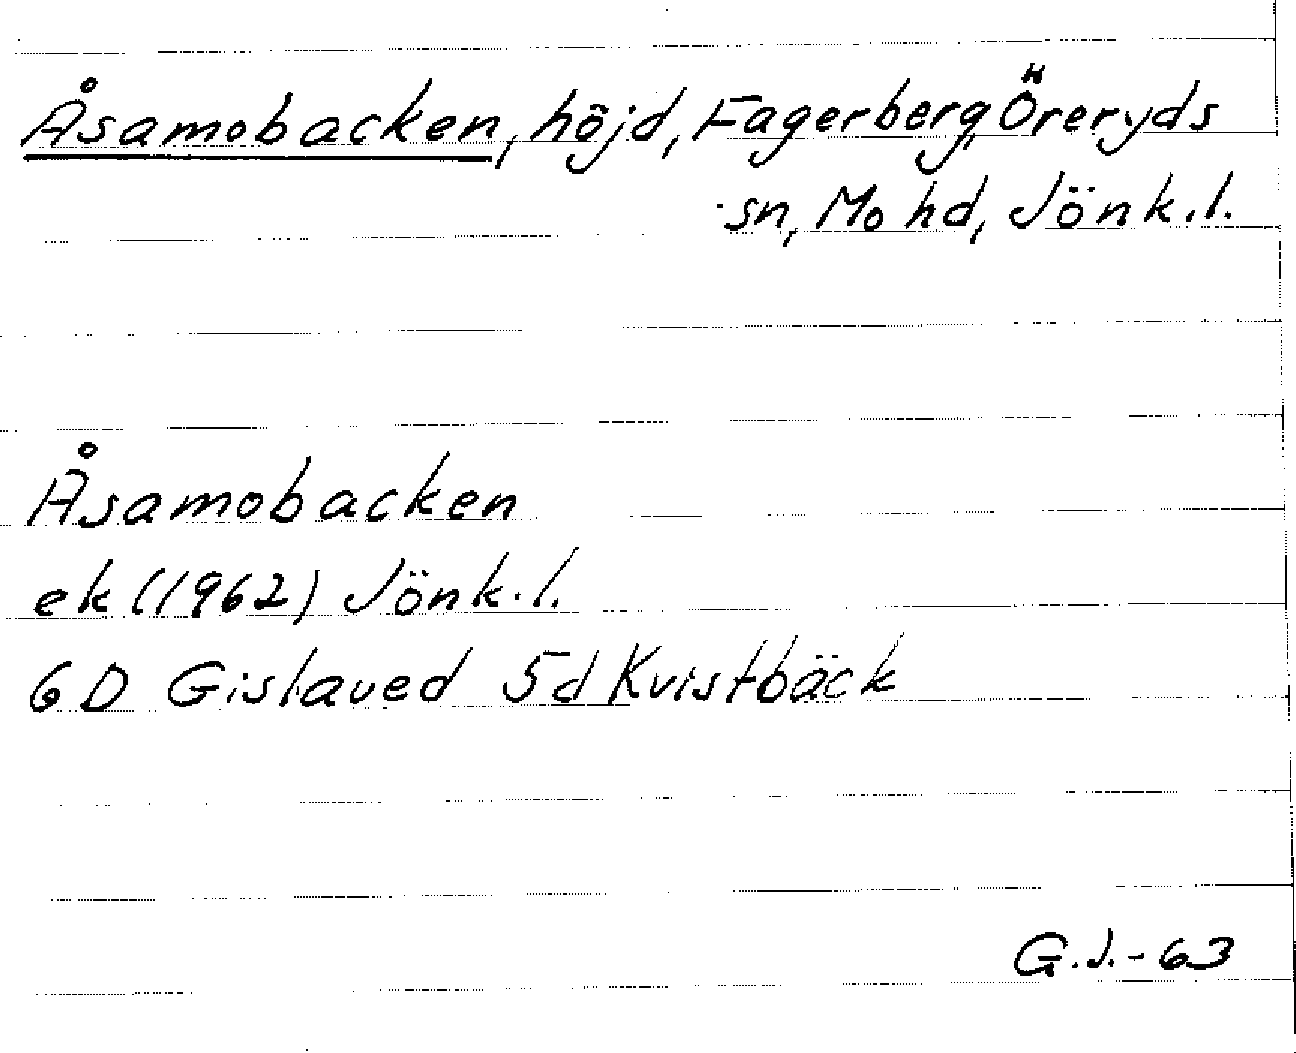 Åsamobacken, höjd, Fagerberg, Öreryds
sn, Mo hd, Jönk.l.
Åsamobacken
ek (1962) Jönk.l.
6D Gislaved 5d Kvistbäck
G.J.-63